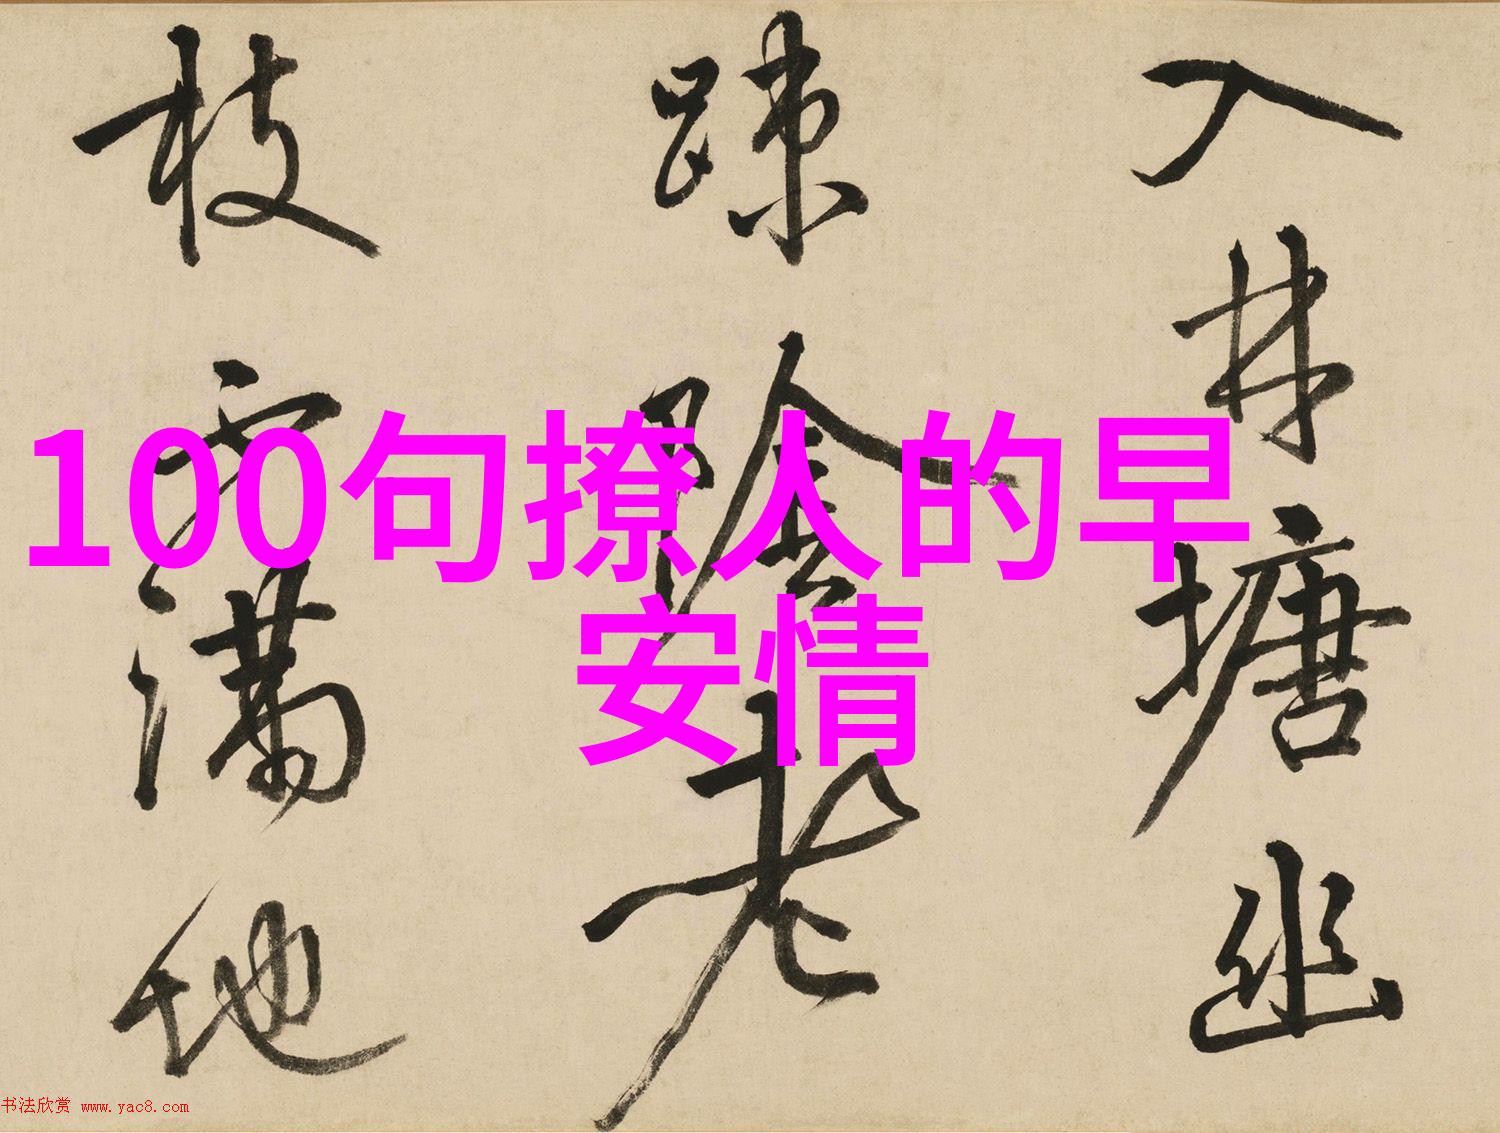 入林塘幽
踈陰老
枝雨滿地
100句撩人的早
安情
书法欣赏 www.yac8.com